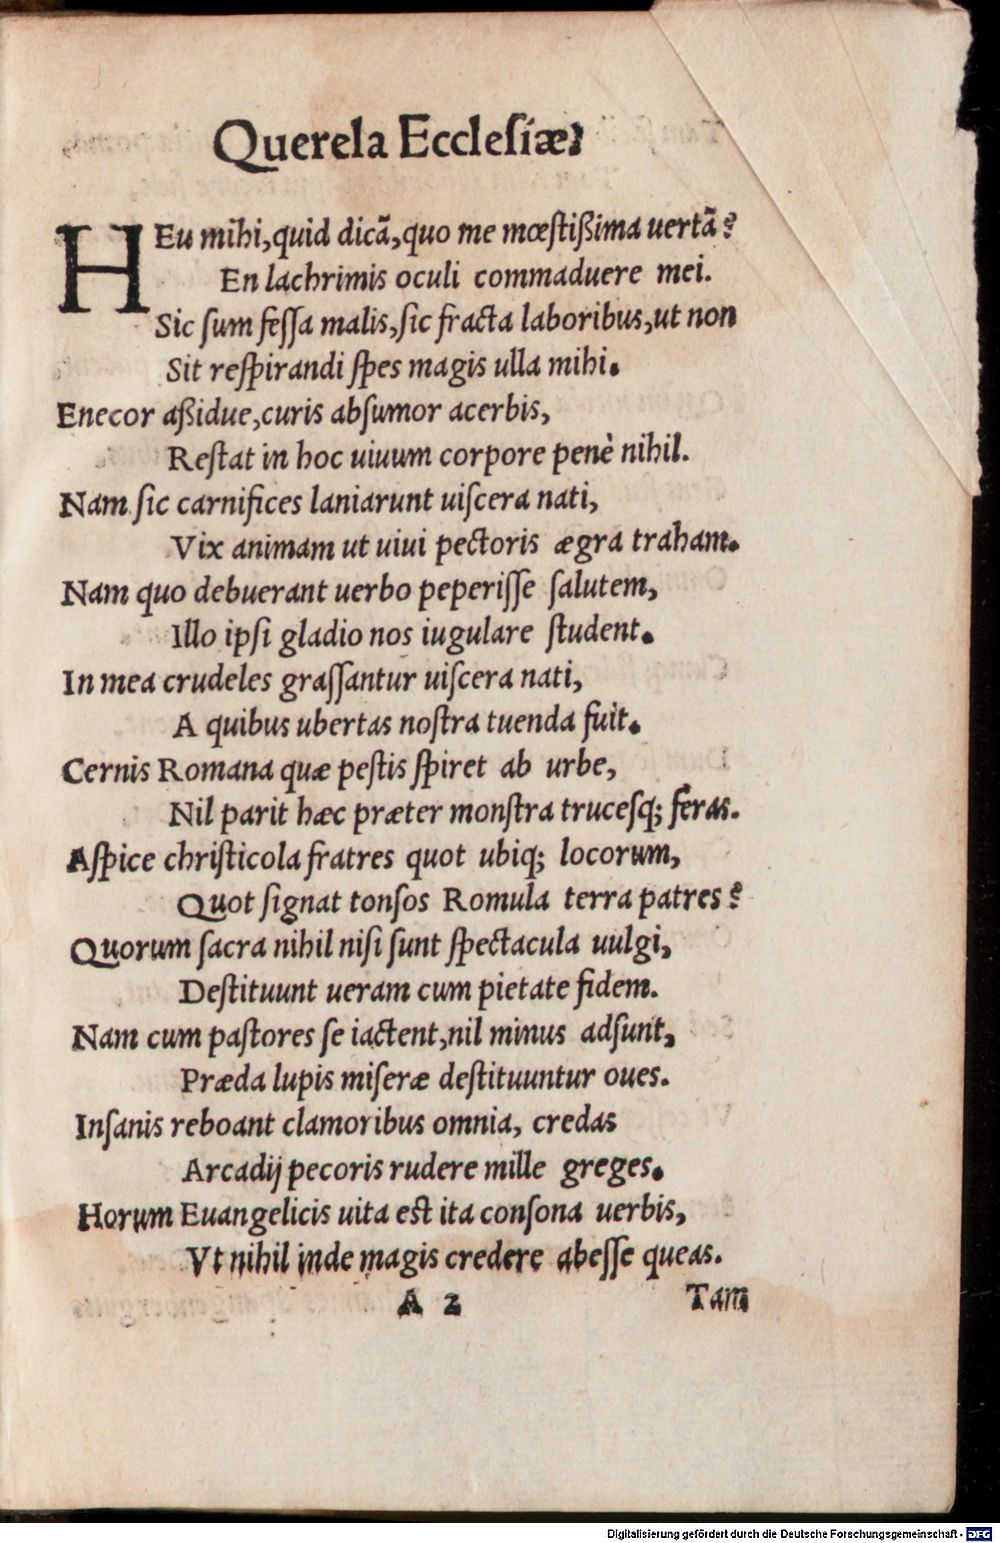 Querela Ecclesiæ.
HEu mihi, quid dicã, quo me mœstißima uertã?
En lachrimis oculi commaduere mei.
Sic ſum feſſa malis, ſic fracta laboribus, ut non
Sit reſpirandi ſpes magis ulla mihi.
Enecor aßidue, curis abſumor acerbis,
Reſtat in hoc uiuum corpore penè nihil.
Nam ſic carnifices laniarunt uiſcera nati,
Vix animam ut uiui pectoris ægra traham.
Nam quo debuerant uerbo peperiſſe ſalutem,
Illo ipſi gladio nos iugulare ſtudent.
In mea crudeles graſſantur uiſcera nati,
A quibus ubertas noſtra tuenda fuit.
Cernis Romana quæ peſtis ſpiret ab urbe,
Nil parit hæc præter monſtra truceſq; feras.
Aſpice chriſticola fratres quot ubiq; locorum,
Quot ſignat tonſos Romula terra patres?
Quorum ſacra nihil niſi ſunt ſpectacula uulgi,
Deſtituunt ueram cum pietate fidem.
Nam cum paſtores ſe iactent, nil minus adſunt,
Præda lupis miſeræ deſtituuntur oues.
Inſanis reboant clamoribus omnia, credas
Arcadij pecoris rudere mille greges.
Horum Euangelicis uita est ita conſona uerbis,
Vt nihil inde magis credere abeſſe queas.
A 2 Tam
Digitalisierung gefördert durch die Deutsche Forschungsgemeinschaft - DFG